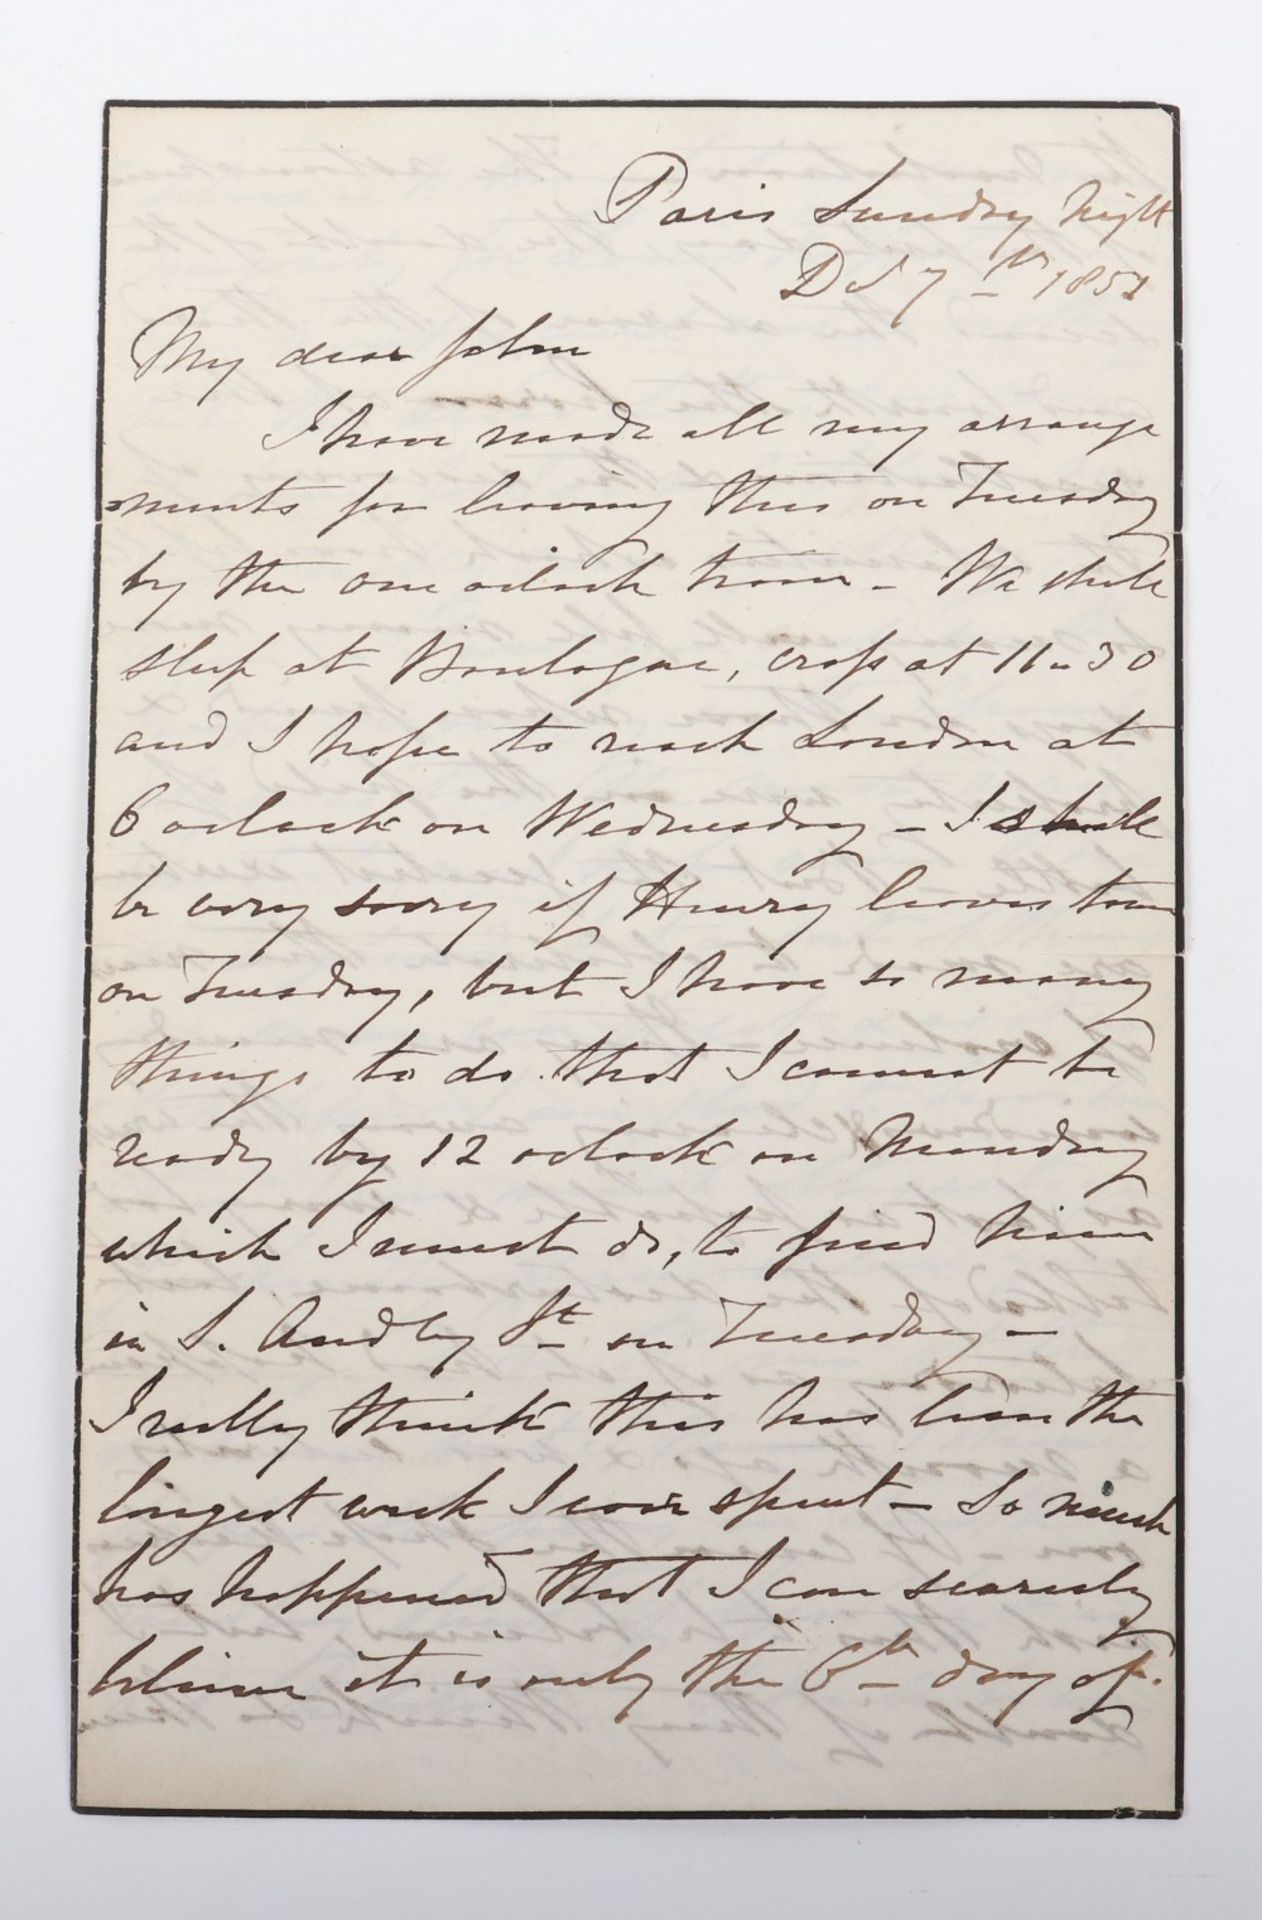 Paris Sunday night
Dec 7th 1851
My dear John
I have made all my arrange
=ments for leaving this on Tuesday
by the one oclock train - We shall
sleep at Boulogne, cross at 11-30
and I hope to reach London at
6 oclock on Wednesday - I shall
be very sorry if Henry leaves town
on Tuesday, but I have so many
things to do that I cannot be
ready by 12 oclock on Monday
which I must do, to find him
in S. Audley St on Tuesday -
I really think this has been the
longest week I ever spent - So much
has happened that I can scarcely
believe it is only the 6th day of